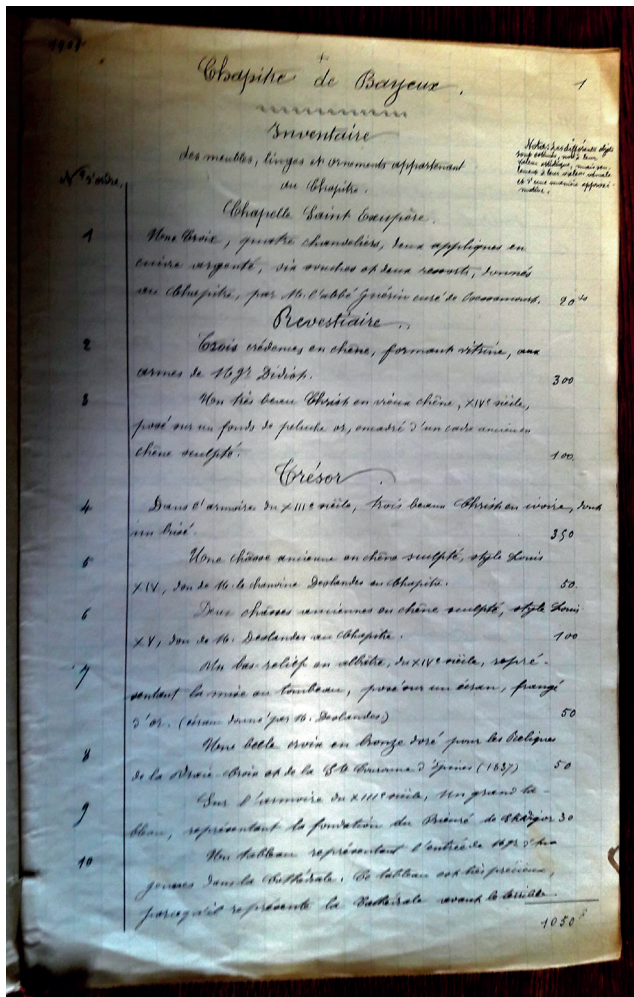 Chapitre de Bayeux.
1
Inventaire
des meubles, linges et ornements appartenant
au Chapitre.
Nota: Les différents objets
sont estimés, non à leur
valeur artistique, mais seu-
lement à leur valeur vénale
et d'une manière approxi-
mative.
N° d'ordre.
Chapelle Saint Exupère.
1 Une Croix, quatre chandeliers, deux appliques en
cuivre argenté, six souches et deux ressorts, donnés
au Chapitre, par M. l'abbé Guérin curé de 20
Revestiaire.
2 Trois crédences en chêne, formant vitrine, aux
armes de Mgr Didiot. 300
3 Un très beau Christ en vieux chêne, XIVe siècle,
posé sur un fonds de peluche or, encadré d'un cadre ancien en
chêne sculpté. 100
Trésor
4 Dans l'armoire du XIIIe siècle, trois beaux Christ en ivoire, dont
un brisé. 350
5 Une châsse ancienne en chêne sculpté, style Louis
XIV, don de M. le chanoine Deslandes au Chapitre. 50.
6 Deux châsses anciennes en chêne sculpté, style Louis
XV, don de M. Deslandes au Chapitre. 100
7 Un bas-relief en albâtre, du XIVe siècle, repré-
sentant la mise au tombeau, posé sur un écran, frangé
d'or. (écran donné par M. Deslandes) 50
8 Une belle croix en bronze doré pour les Reliques
de la Vraie-Croix et de la Ste Couronne d'épines (1837) 50
9 Sur l'armoire du XIIIe siècle, un grand ta-
bleau, représentant la fondation du Prieuré de 30
10 Un tableau représentant l'entrée de Mgr d'An
gennes dans la Cathédrale. Ce tableau est très précieux,
parce qu'il représente la Cathédrale avant le terrible
1050 f